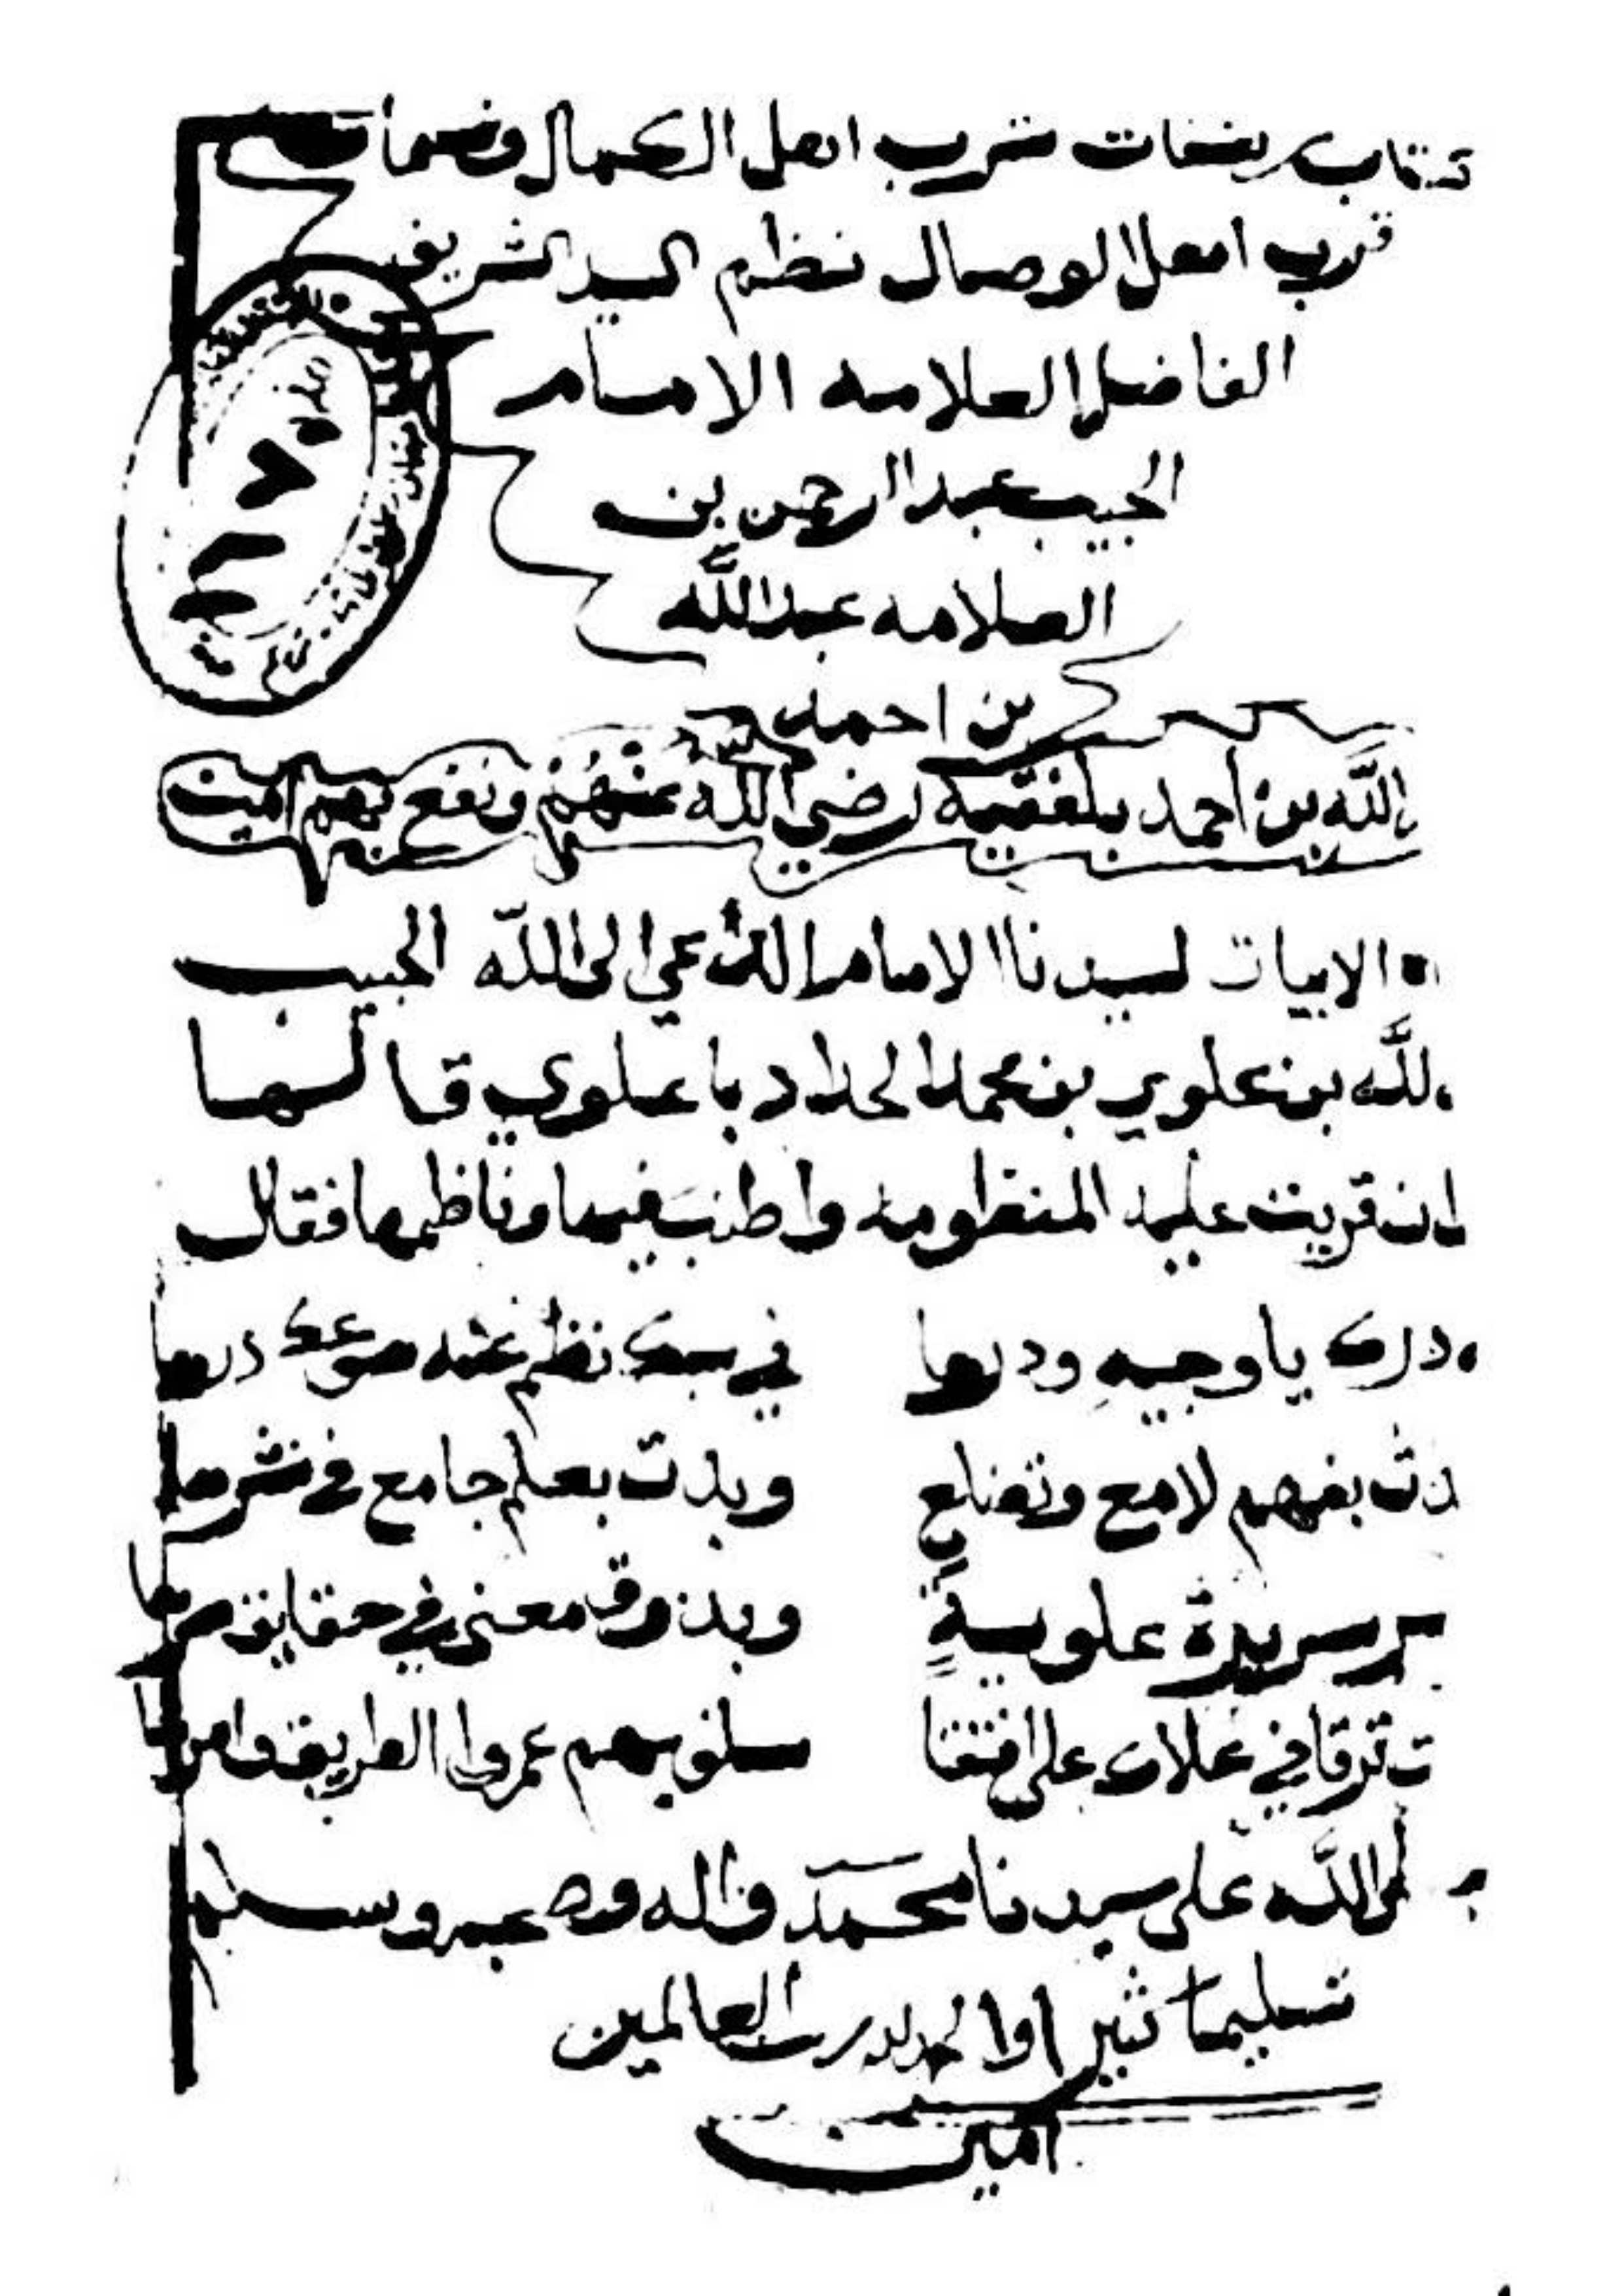 كتاب رشفات شرب اهل الكمال ونسمات
قرب اهل الوصال نظم السيد الشريف
الفاضل العلامه الامام
الحبيب عبدالرحمن بن
العلامه عبدالله
بن احمد
الله بن احمد بلفقيه رضي الله عنهم ونفع بهم امين
الابيات لسيدنا الامام الداعي الى الله الحبيب
لله بن علوي بن محمد الحداد باعلوي قالها
ان قريت عليه المنظومه واطنب فيها وناظمها فقال
درك يا وجيه ودرها في سبك نظم عنه صوغك درها
دت بفهم لامع وتضلع وبدت بعلم جامع في نشرها
سريرة علوية وبذوق معنى في حقايق سرها
ت ترقا في علاك على اقتفا سلف بهم عمروا الطريق وامرها
لى الله على سيدنا محمد واله وصحبه وسلم
تسليما كثيرا والحمدلله رب العالمين
امين